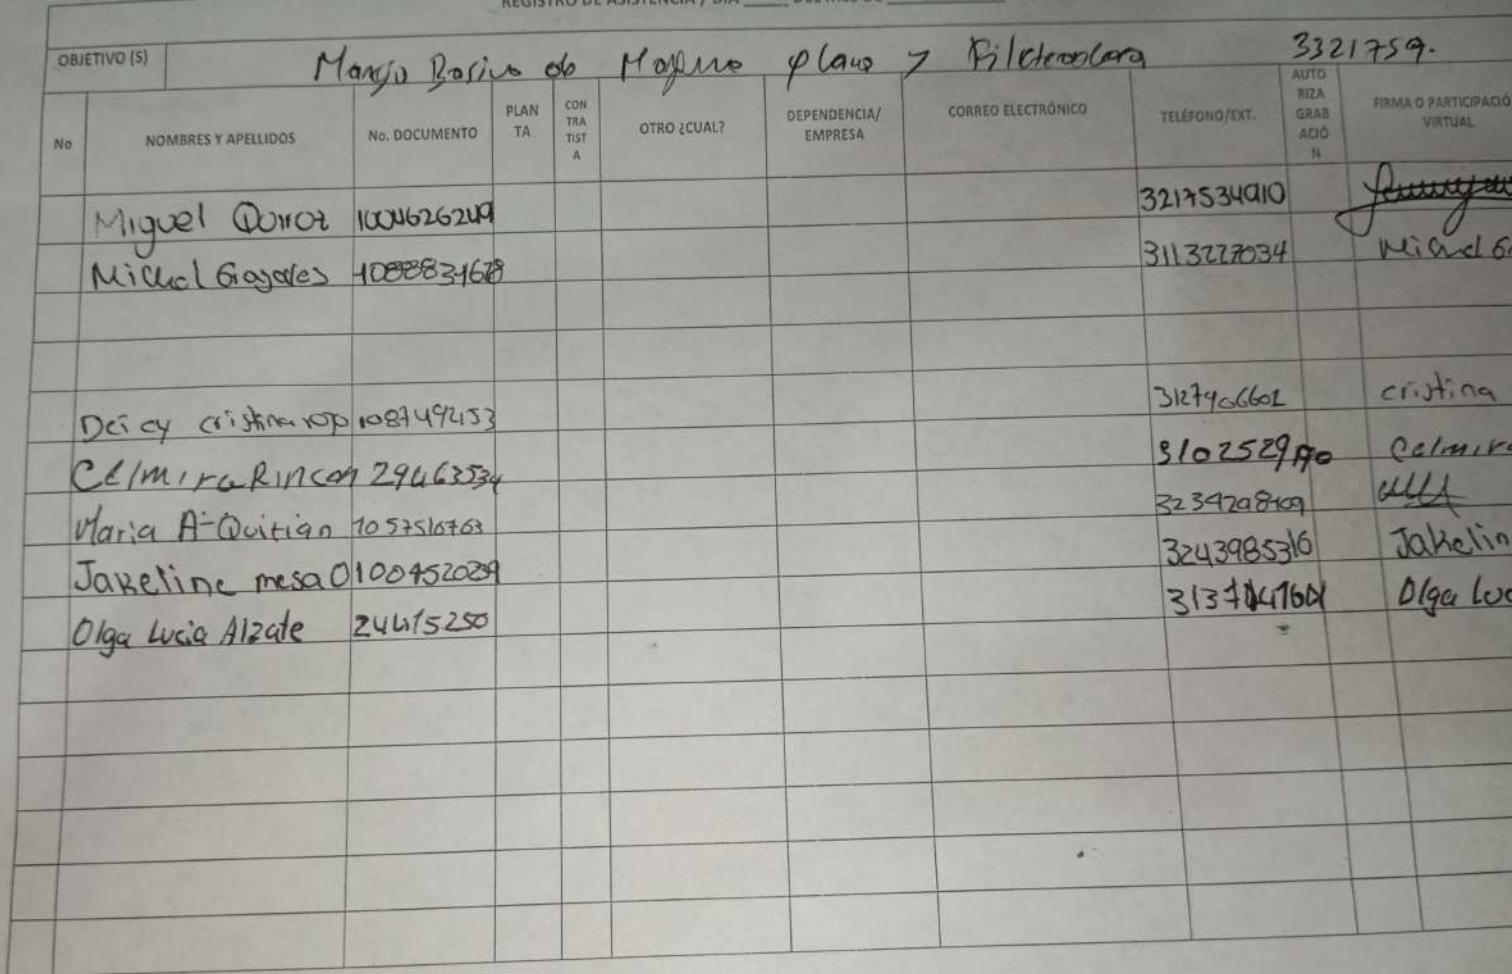 REGISTRO DE ASISTENCIA / DÍA
OBJETIVO (S) Manejo Basico de Maquina plana y Fileteadora 3321759.
No NOMBRES Y APELLIDOS No. DOCUMENTO PLAN TA CON TRA TIST A OTRO ¿CUAL? DEPENDENCIA/ EMPRESA CORREO ELECTRÓNICO TELÉFONO/EXT. AUTO RIZA GRAB ACIÓ N FIRMA O PARTICIPACIÓ VIRTUAL
Miguel 1004626249 3217534910
Michel Grajales 1088831678 3113227034 Michel G
Deicy cristina 108749453 3127406601 cristina
Celmira Rincon 29463534 Celmira
Maria A- Quitian 1057516763
Jakeline mesa O 3243985316 Jakelin
Olga Lucia Alzate 24415250 Olga Luc